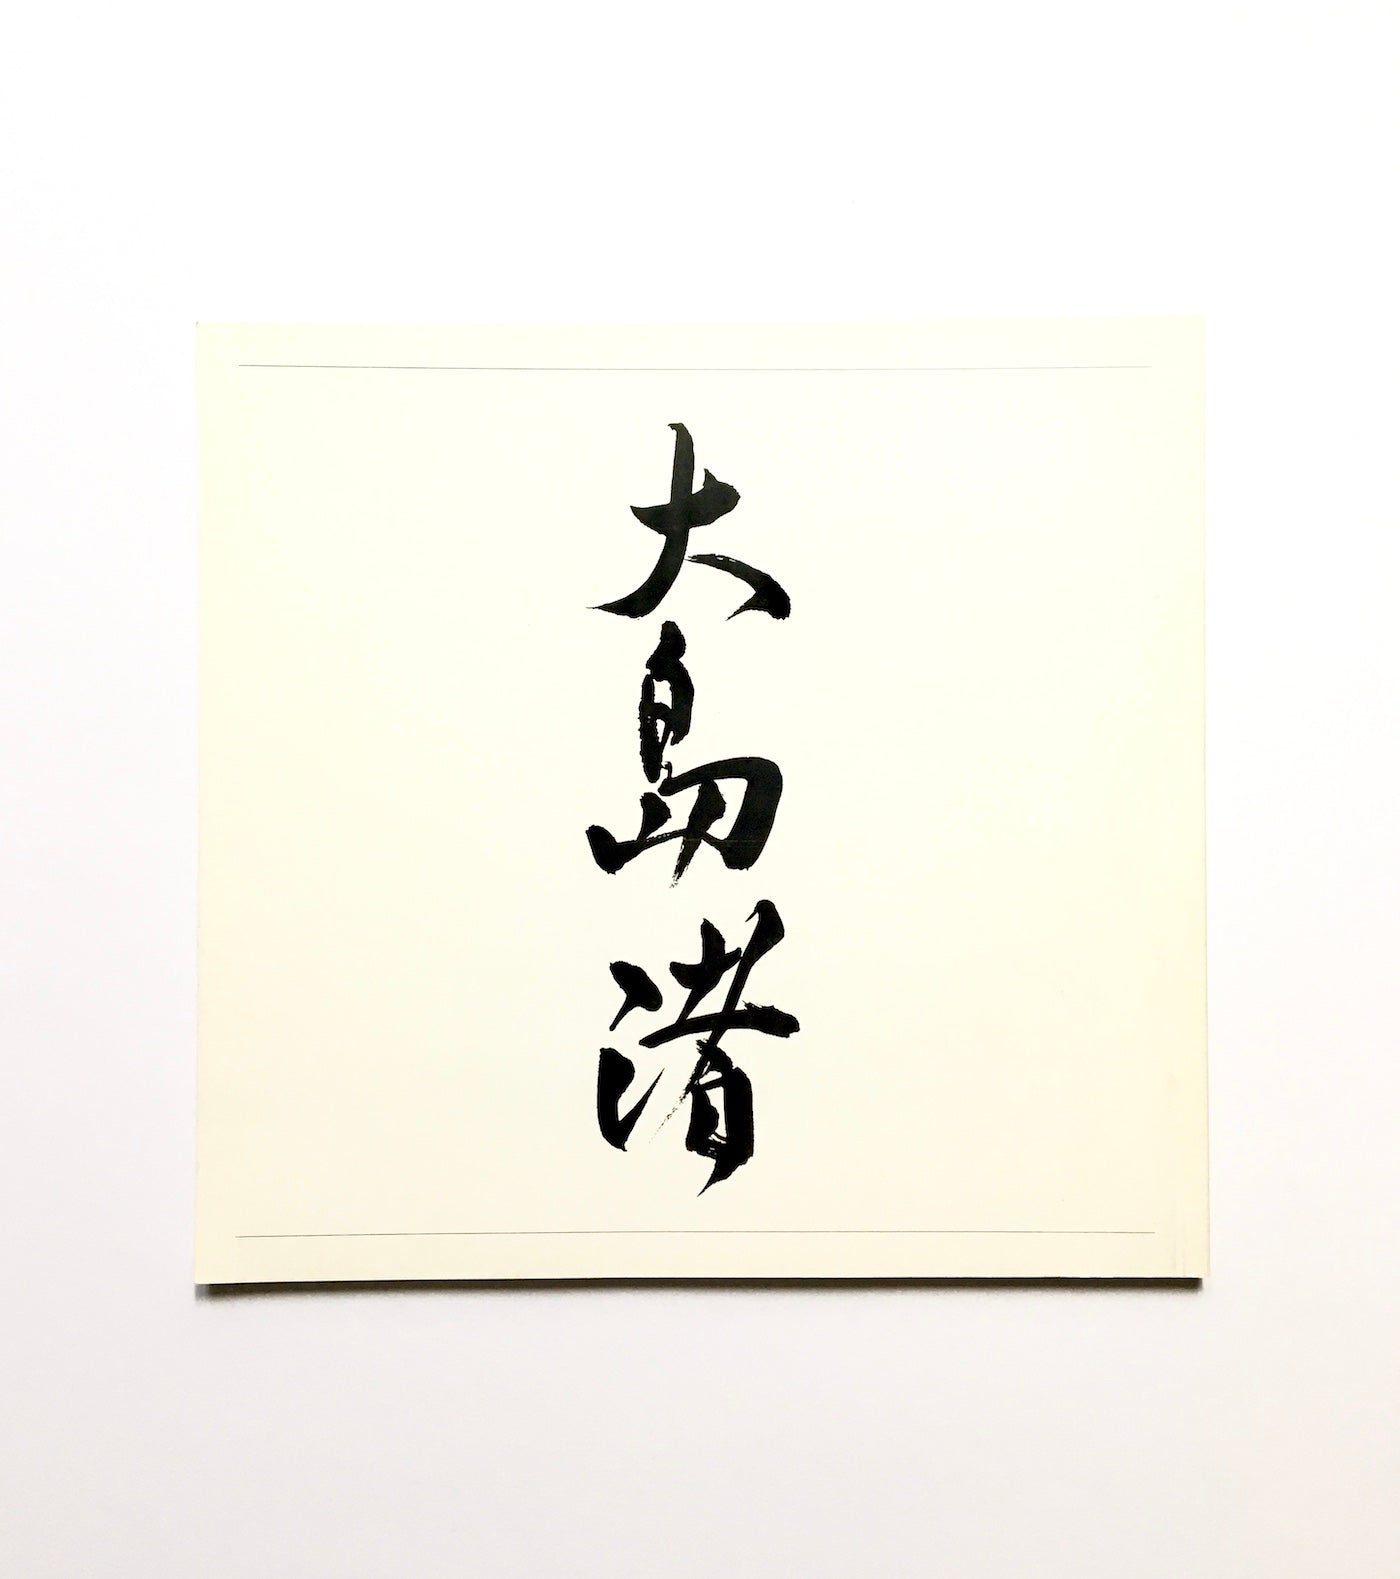 大島渚